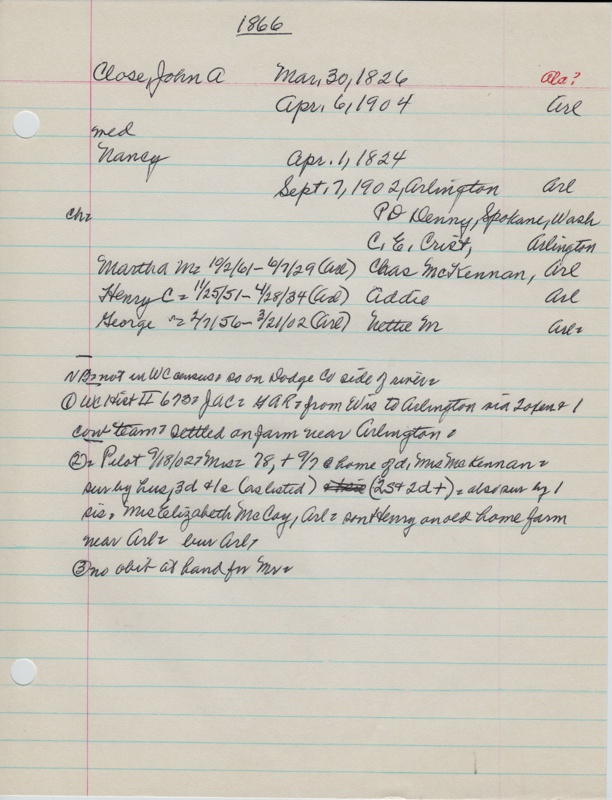 1866
Close, John A Mar, 30, 1826 Ala?
Apr. 6, 1904 Arl
med
Nancy Apr. 1, 1824
Sept. 7, 1902, Arlington Arl
ch= PO Denny, Spokane, Wash
C. E. Crist, Arlington
Martha M= 10/2/61 - 6/7/29 (Arl) Chas McKennan, Arl
Henry C = 11/25/51 - 4/28/34 (Arl) Addie Arl
George = 2/7/56 - 3/21/02 (Arl) Nettie M Arl=
NB= not in WC census = so on Dodge Co side of river=
① WC Hist II 673= JAC= GAR= from Wis to Arlington via 2 oxen & 1
cow team= settled on farm near Arlington =
②= Pilot 9/18/02= Mrs= 78, + 9/7 @ home of d, Mrs McKennan=
sur by hus, 3d & 1s (as listed) (2s + 2d +) = also sur by 1
sis= Mrs Elizabeth McCoy, Arl= son Henry on old home farm
near Arl= bur Arl,
③ no obit at hand for Mr=